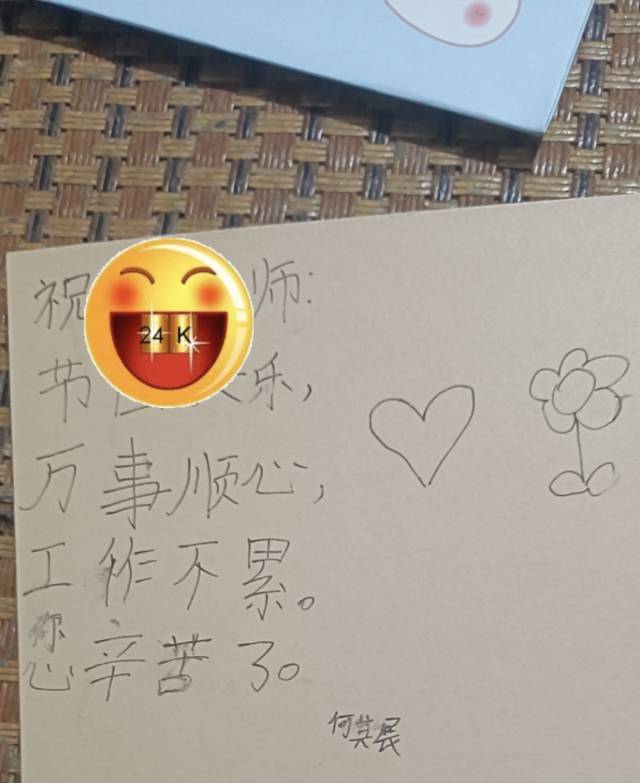 祝 师:
节 乐,
万事顺心,
工作不累。
您辛苦了。
何其民
24 K